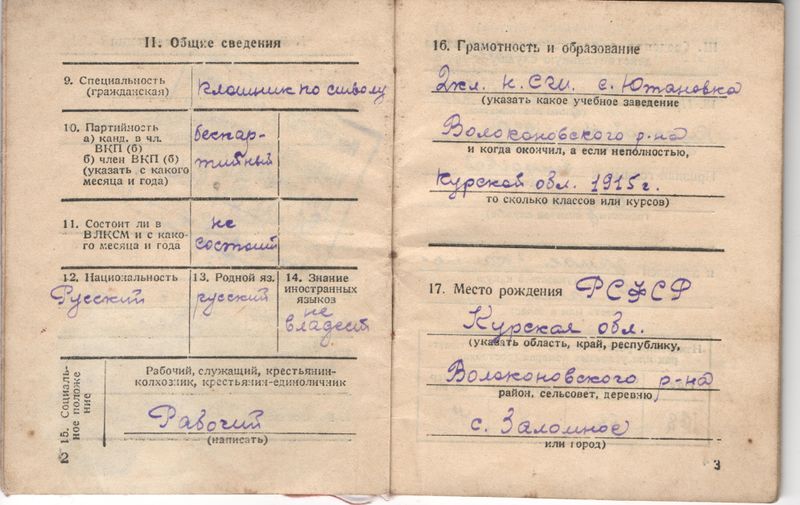 II. Общие сведения
9. Специальность
(гражданская)
по
10. Партийность
а) канд. в чл.
ВКП (б)
б) член ВКП (б)
(указать с какого
месяца и года)
беспар-
тийный
11. Состоит ли в
ВЛКСМ и с како-
го месяца и года
не
состоит
12. Национальность
Русский
13. Родной яз.
русский
14. Знание
иностранных
языков
не
владеет
15. Социаль-
ное положе
ние
Рабочий, служащий, крестьянин-
колхозник, крестьянин-единоличник
Рабочий
(написать)
2
16. Грамотность и образование
2кл. с. Ютановка
(указать какое учебное заведение
Волоконовского р-на
и когда окончил, а если неполностью,
Курской обл. 1915 г.
то сколько классов или курсов)
17. Место рождения РСФСР
Курская обл.
(указать область, край, республику,
Волоконовского р-на
район, сельсовет, деревню
с. Заломное
или город)
3